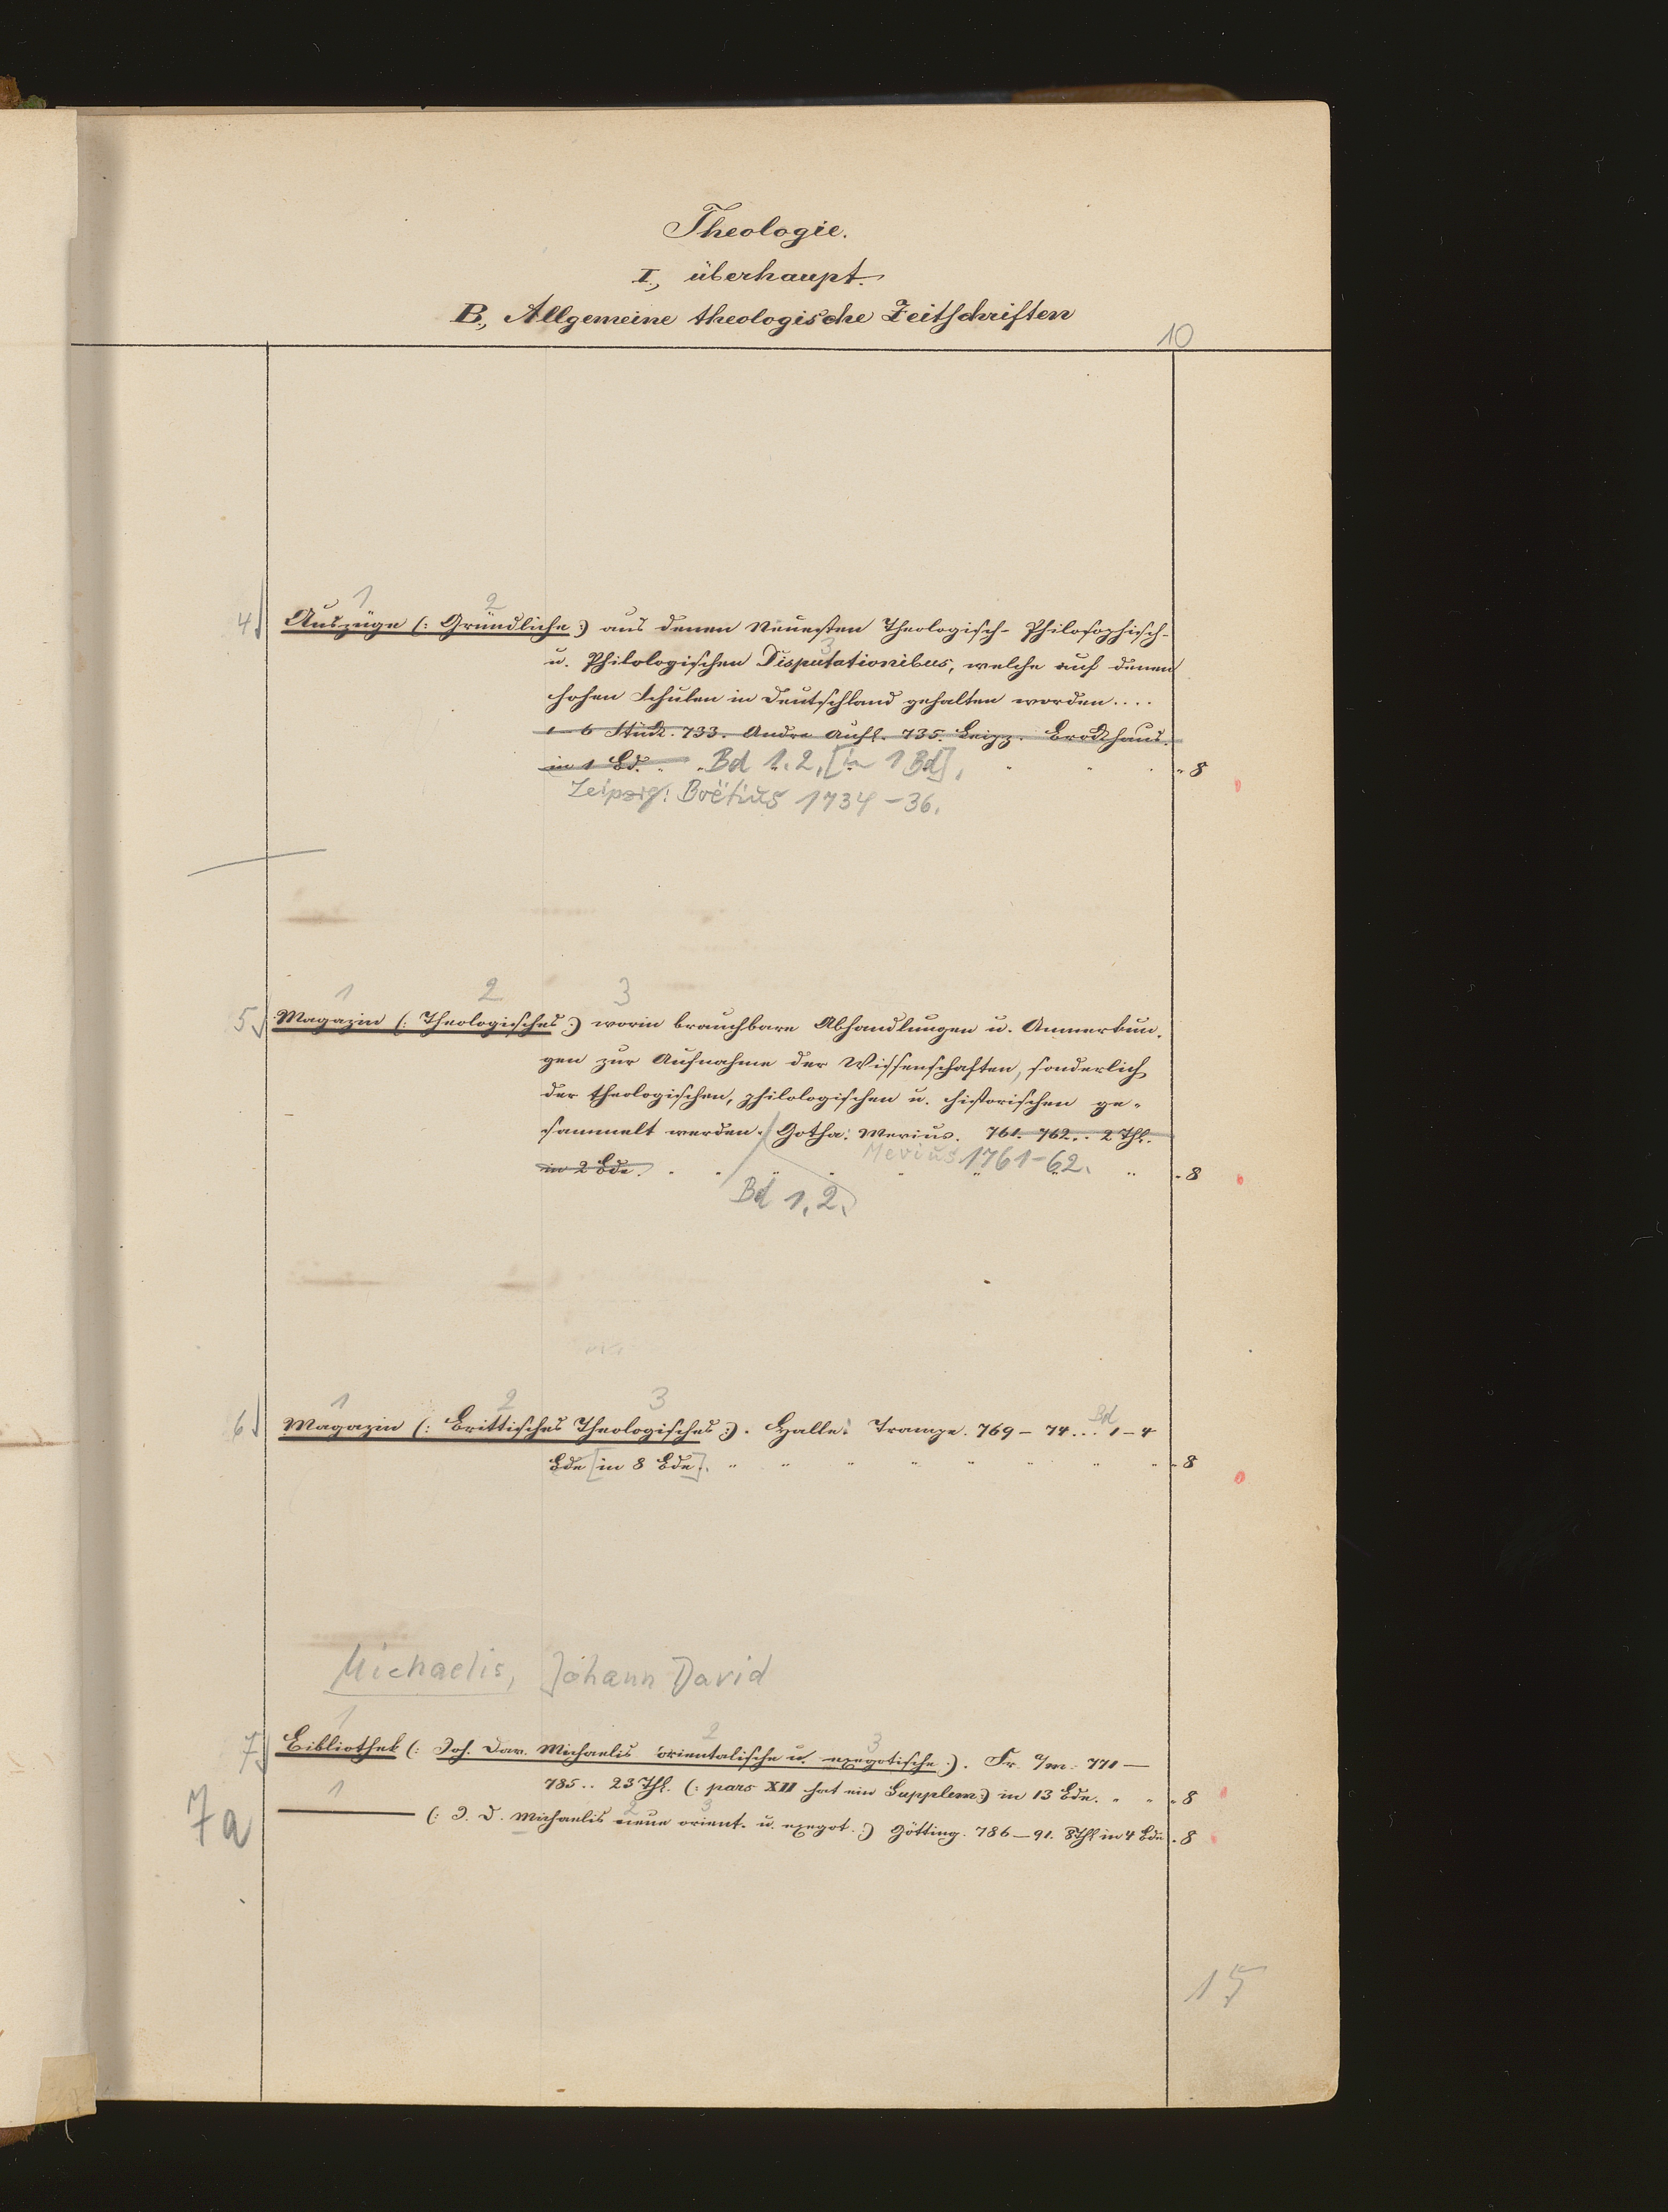 Theologie.
I., überhaupt.
B., Allgemeine theologische Zeitschriften
10
1 2
4 Auszüge (: Gründliche :) aus denen Neuesten Theologisch- Philosophisch-
3
u. Philologischen Disputationibus, welche auf denen
hohen Schulen in Deutschland gehalten worden....
1-6 Stück. 733. Andre Aufl. 735. Leipz. Brockhaus.
in 1 Bd. Bd 1.2, [in 1 Bd], 8
Leipzig: Boëtius 1734-36.
1 2 3
5 Magazin (: Theologisches :) worin brauchbare Abhandlungen u. Anmerkun-
gen zur Aufnahme der Wissenschaften, sonderlich
der theologischen, philologischen u. historischen ge-
sammelt werden. Gotha: Mevius. 761. 762.. 2 Thl.
in 2 Bde. Mevius 1761-62. 8
Bd 1.2.
1 2 3
6 Magazin (: Brittisches Theologisches :). Halle: Trampe. 769-74... Bd 1-4
Bde [in 8 Bde]. 8
Michaelis, Johann David
1 2 3
7 Bibliothek (: Joh. Dav. Michaelis orientalische u. exegetische :). Fr. a/m. 771-
785.. 23 Thl. (: pars XII hat ein Supplem :) in 13 Bde. 8
1 2 3
7a ——— (: J. D. Michaelis neue orient. u. exeget. :) Götting. 786-91. 8 Thl in 4 Bde. 8
15